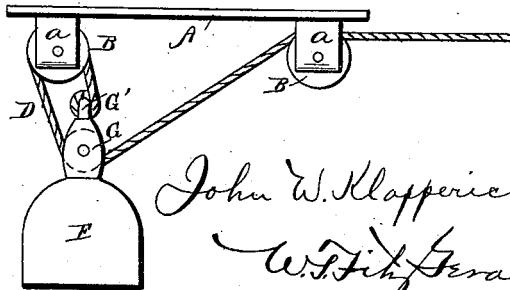 a
B
A'
a
G'
B
D
G
John W. Klapperic
F
W. T. Fitz Gera